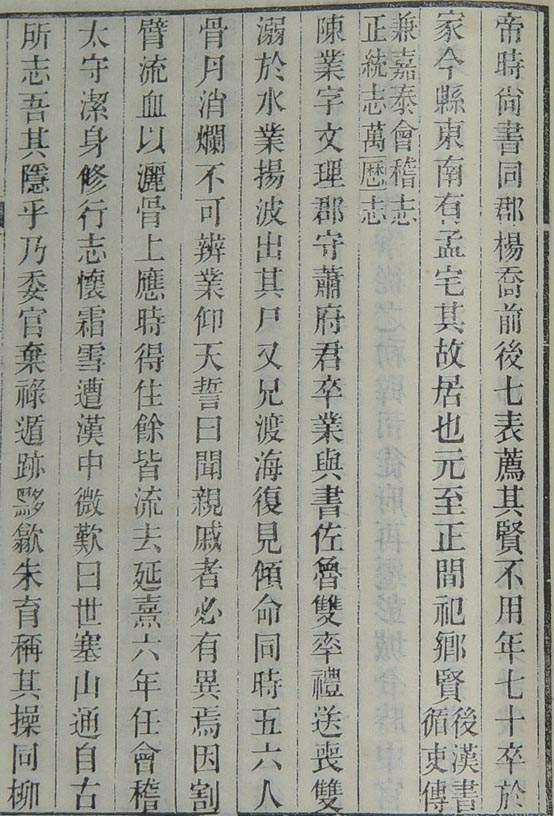 帝時尚書同郡楊喬前後七表薦其賢不用年七十卒於
家今縣東南有孟宅其故居也元至正間祀鄉賢後漢書循吏傳
兼嘉泰會稽志正統志萬曆志
陳業字文理郡守蕭府君卒業與書佐魯雙率禮送喪雙
溺於水業揚波出其尸又兄渡海復見傾命同時五六人
骨肉消爛不可辨業仰天誓曰聞親戚者必有異焉因割
臂流血以灑骨上應時得住餘皆流去延熹六年任會稽
太守潔身修行志懷霜雪遭漢中微歎曰世塞山通自古
所志吾其隱乎乃委官棄祿遁跡黟歙朱育稱其操同柳